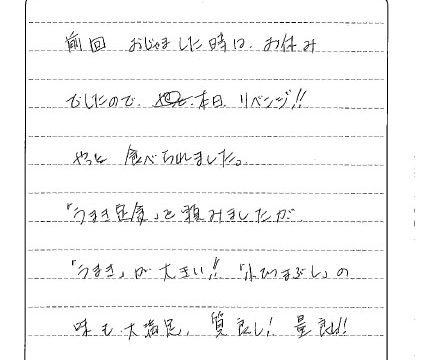 前回 おじゃました時は、お休み
でしたので、本日 リベンジ!!
やっと 食べられました。
「うまき定食」を頼みましたが
「うまき」が大きい!!「小ひつまぶし」の
味も大満足、質良し! 量良し!!